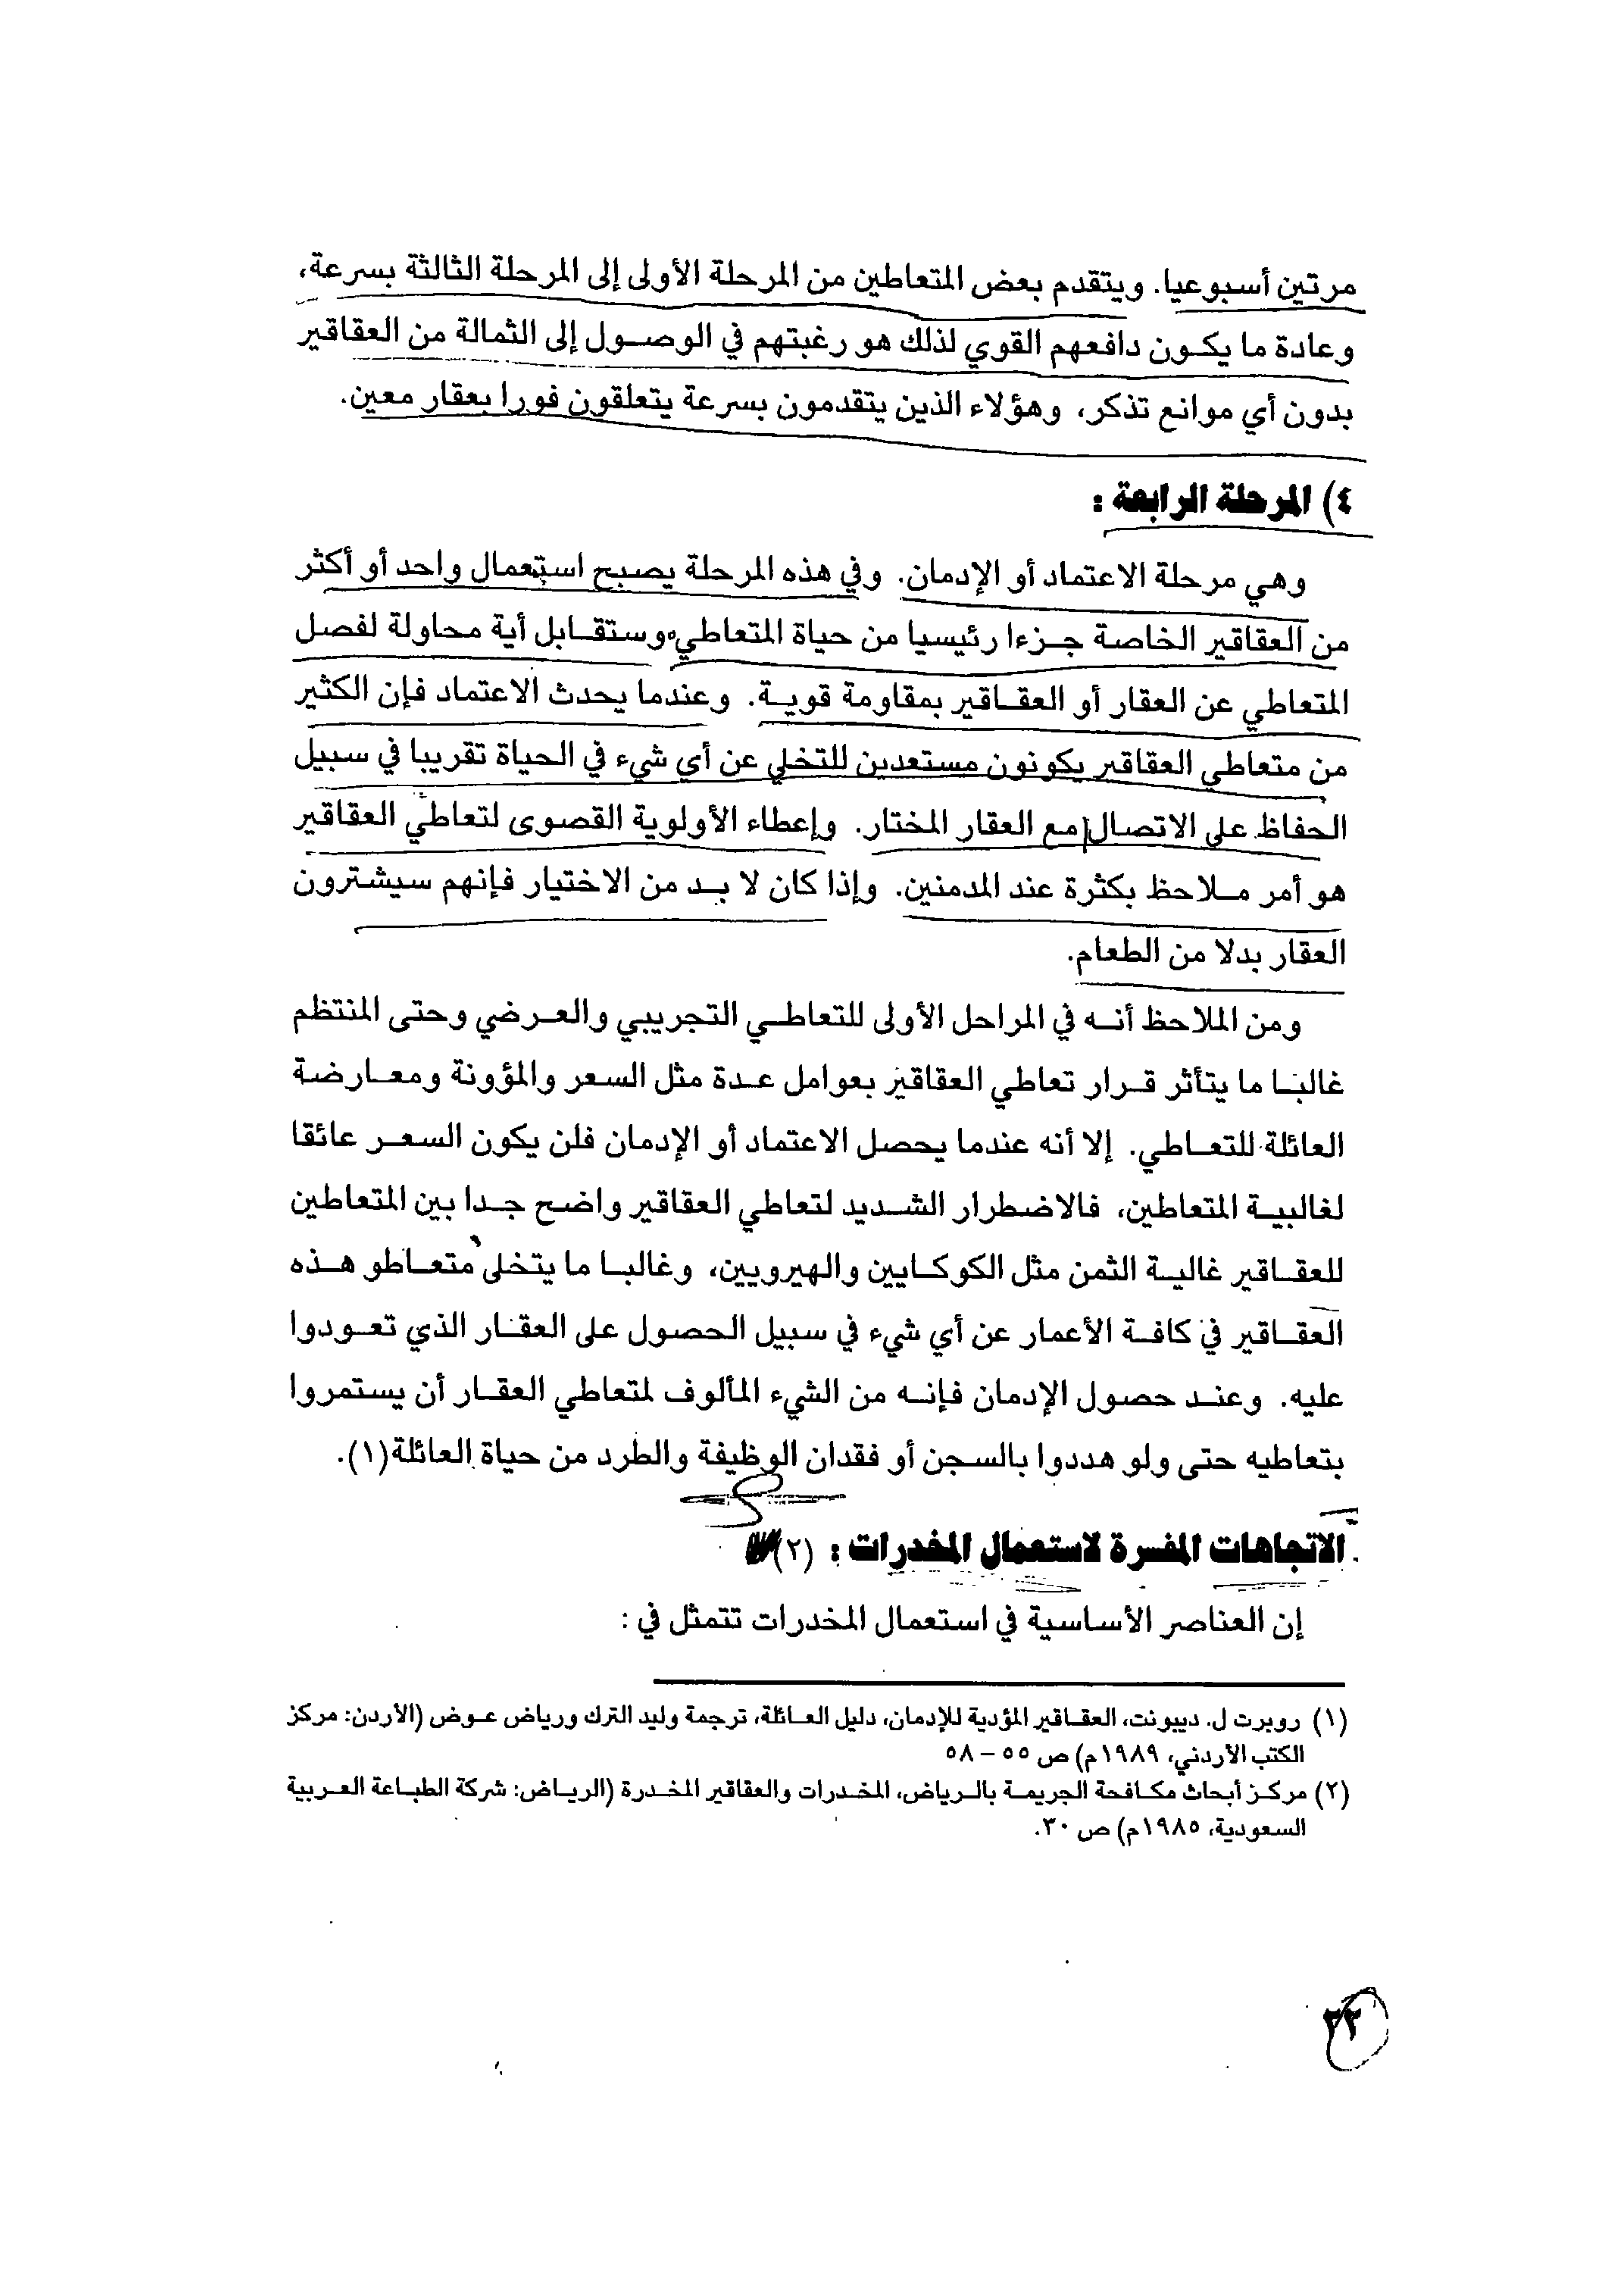 مرتين أسبوعيا. ويتقدم بعض المتعاطين من المرحلة الأولى إلى المرحلة الثالثة بسرعة،
وعادة ما يكون دافعهم القوي لذلك هو رغبتهم في الوصول إلى الثمالة من العقاقير
بدون أي موانع تذكر، وهؤلاء الذين يتقدمون بسرعة يتعلقون فورا بعقار معين.
٤) المرحلة الرابعة :
وهي مرحلة الاعتماد أو الإدمان. وفي هذه المرحلة يصبح استعمال واحد أو أكثر
من العقاقير الخاصة جزءا رئيسيا من حياة المتعاطي، وستقابل أية محاولة لفصل
المتعاطي عن العقار أو العقاقير بمقاومة قوية. وعندما يحدث الاعتماد فإن الكثير
من متعاطي العقاقير يكونون مستعدين للتخلي عن أي شيء في الحياة تقريبا في سبيل
الحفاظ على الاتصال مع العقار المختار. وإعطاء الأولوية القصوى لتعاطي العقاقير
هو أمر ملاحظ بكثرة عند المدمنين. وإذا كان لا بد من الاختيار فإنهم سيشترون
العقار بدلا من الطعام.
ومن الملاحظ أنه في المراحل الأولى للتعاطي التجريبي والعرضي وحتى المنتظم
غالبا ما يتأثر قرار تعاطي العقاقير بعوامل عدة مثل السعر والمؤونة ومعارضة
العائلة للتعاطي. إلا أنه عندما يحصل الاعتماد أو الإدمان فلن يكون السعر عائقا
لغالبية المتعاطين، فالاضطرار الشديد لتعاطي العقاقير واضح جدا بين المتعاطين
للعقاقير غالية الثمن مثل الكوكايين والهيرويين، وغالبا ما يتخلى متعاطو هذه
العقاقير في كافة الأعمار عن أي شيء في سبيل الحصول على العقار الذي تعودوا
عليه. وعند حصول الإدمان فإنه من الشيء المألوف لمتعاطي العقار أن يستمروا
بتعاطيه حتى ولو هددوا بالسجن أو فقدان الوظيفة والطرد من حياة العائلة(١).
الاتجاهات المفسرة لاستعمال المخدرات : (٢)
إن العناصر الأساسية في استعمال المخدرات تتمثل في :
(١) روبرت ل. ديبونت، العقاقير المؤدية للإدمان، دليل العائلة، ترجمة وليد الترك ورياض عوض (الأردن: مركز
الكتب الأردني، ١٩٨٩م) ص ٥٥ – ٥٨
(٢) مركز أبحاث مكافحة الجريمة بالرياض، المخدرات والعقاقير المخدرة (الرياض: شركة الطباعة العربية
السعودية، ١٩٨٥م) ص ٣٠.